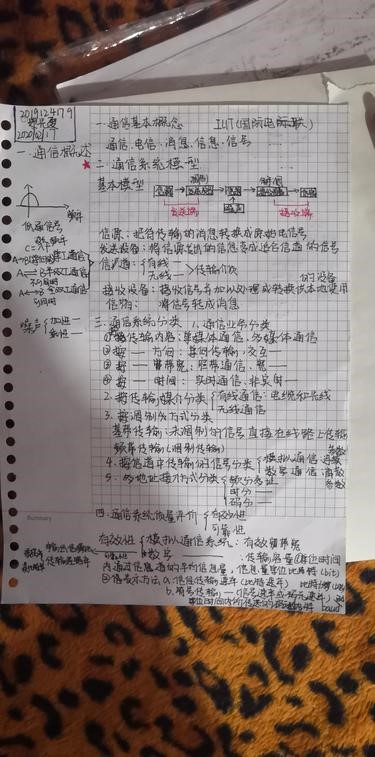 2019124179
2020.9.17
一、通信概述
一、通信基本概念 IUT(国际电信联)
通信、电信、消息、信息、信号
★二、通信系统模型
基本模型
发送端 接收端
频率
低通信号
A→B单工通信
A⇌B半双工通信
不同时
A⇌B全双工通信
可同时
噪声{加性
乘性
信源：把待传输的消息转换成原始电信号
发送设备：将信源发出的信息变成适合信道的信号
信道{有线 无线—>传输介质
接收设备：接收信号并加以处理或转换供本地使用的设备
信宿：将信号转成消息
三、通信系统分类 1.通信业务分类
①按传输内容：单媒体通信，多媒体通信
②按—方向：单向传输，交互—
③按—带宽：窄带通信，宽—
④按—时间：实时通信，非实时—
2.按传输媒介分类{有线通信：电缆和光缆
无线通信
3.按调制方式分类
基带传输：未调制的信号直接在线路上传输
频带传输(调制传输)
4.按信道中传输的信号分类{模拟通信：连续参数
数字通信：离散参数
5.多地址接入方式分类{频分多址
时分—
码分—
Summary
四、通信系统质量评价{有效性
可靠性
有效性{模拟通信系统：有效频带宽
数字—：传输容量(单位时间
内通过信道的平均信息量，信息量单位比特(bit)
②传表示方法a.信息传输速率(比特速率) 比特/秒(b/s)
b.符号传输—(信号速率或码元速率)
单位时间内 baud